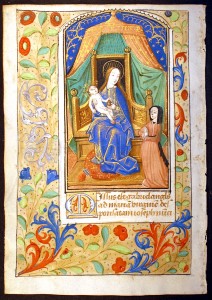 Missus est gabriel angelus
ad mariam virginem des
ponsatam ioseph